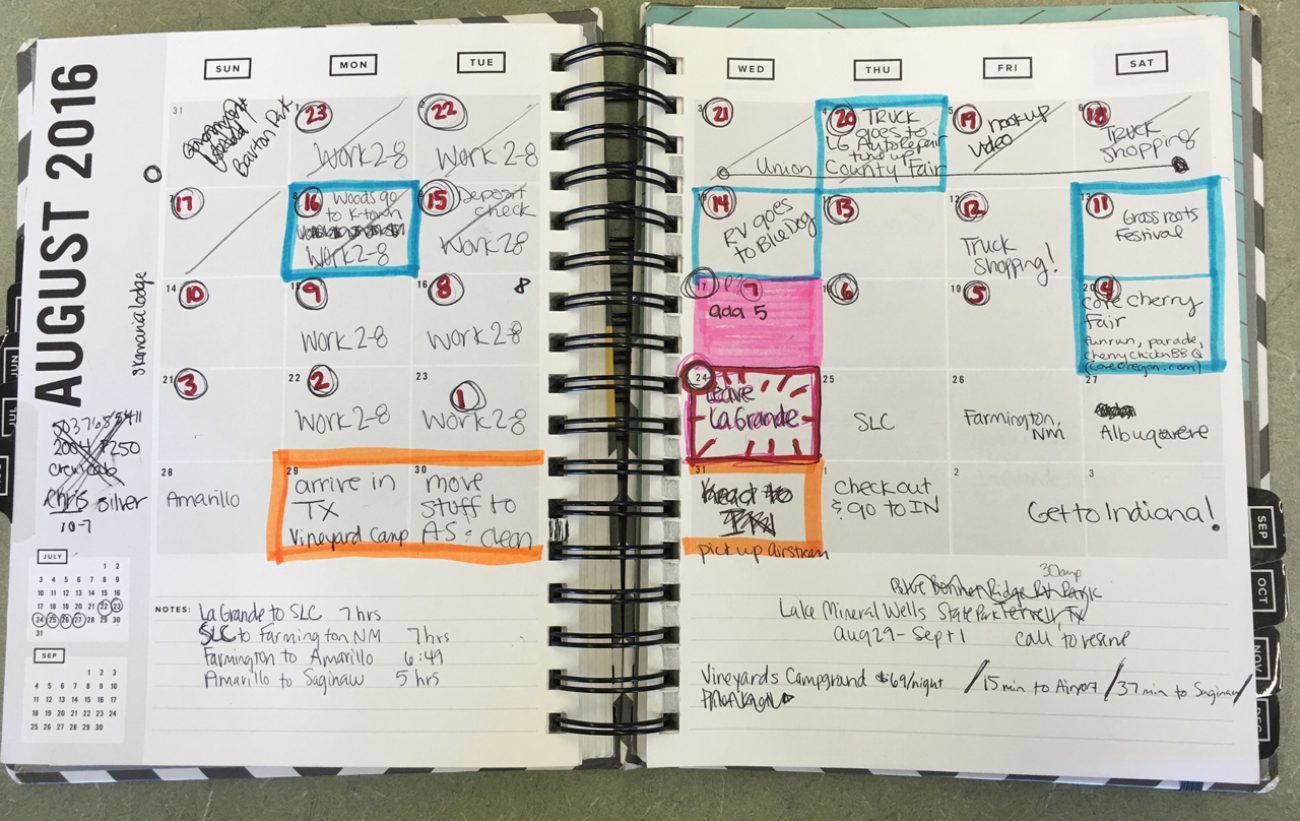 AUGUST 2016
SUN
MON
TUE
WED
THU
FRI
SAT
31
Barton Park
23
Work 2-8
22
Work 2-8
3
21
Union County Fair
4
20
TRUCK
goes to
LG AutoRepair
tune up
5
19
hookup
video
18
TRUCK
Shopping
skamania lodge
7
17
8
16
Woods go
to K-town
Work 2-8
15
Deposit
check
Work 2-8
14
RV goes
to Blue Dog
13
12
Truck
Shopping!
13
11
Grassroots
Festival
14
10
15
9
Work 2-8
16
8
8
Work 2-8
17
7
ada 5
6
5
20
4
Cove cherry
Fair
funrun, parade,
cherry chickn BBQ
(coveoregon.com)
21
3
22
2
Work 2-8
23
1
Work 2-8
24
Leave
La Grande
25
SLC
26
Farmington,
NM
27
Albuquerere
28
Amarillo
29
arrive in
TX
Vineyard Camp
30
move
stuff to
AS & clean
31
Head to
IN
pick up airstream
1
Check out
& go to IN
2
3
Get to Indiana!
2004 F250
crew cab
Chris silver
10-7
JUN
JUL
SEP
OCT
NOV
DEC
JULY
1 2
3 4 5 6 7 8 9
10 11 12 13 14 15 16
17 18 19 20 21 22 23
24 25 26 27 28 29 30
31
SEP
1 2 3
4 5 6 7 8 9 10
11 12 13 14 15 16 17
18 19 20 21 22 23 24
25 26 27 28 29 30
NOTES:
La Grande to SLC 7 hrs
SLC to Farmington NM 7 hrs
Farmington to Amarillo 6:49
Amarillo to Saginaw 5 hrs
30amp
Ridge RV Park
Lake Mineral Wells State Park Terrell, TX
Aug 29 - Sept 1 call to reserve
Vineyards Campground $69/night / 15 min to Airport / 37 min to Saginaw